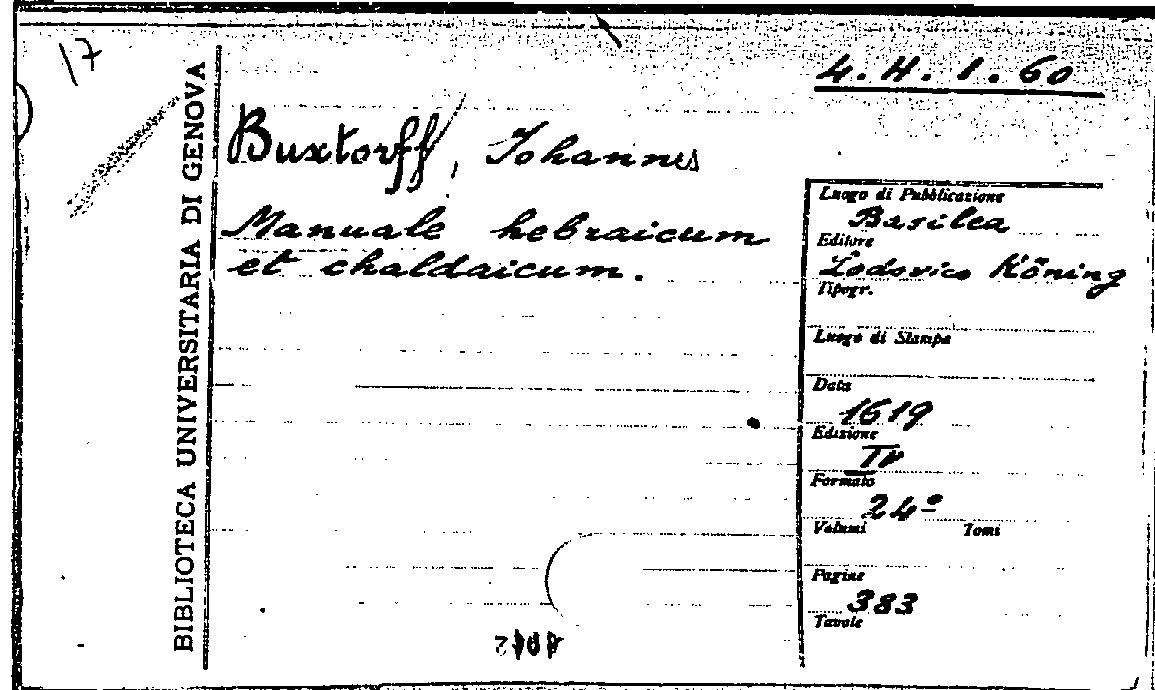 17
4. H. 1. 60
BIBLIOTECA UNIVERSITARIA DI GENOVA
Buxtorff, Johannes
Manuale hebraicum
et chaldaicum.
Luogo di Pubblicazione
Basilea
Editore
Lodovico Köning
Tipogr.
Luogo di Stampa
Data
1619
Edizione
IV
Formato
24º
Volumi Tomi
Pagine
383
Tavole